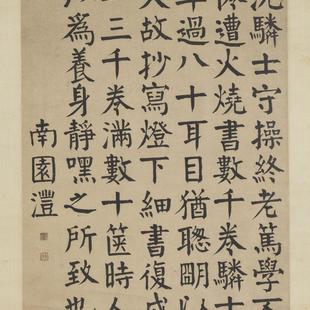 沈驎士守操終老篤學不
倦遭火燒書數千卷驎士
年過八十耳目猶聰眀以
故抄寫燈下細書復成
二三千卷滿數十篋時人
以為養身靜嘿之所致也
南園灃